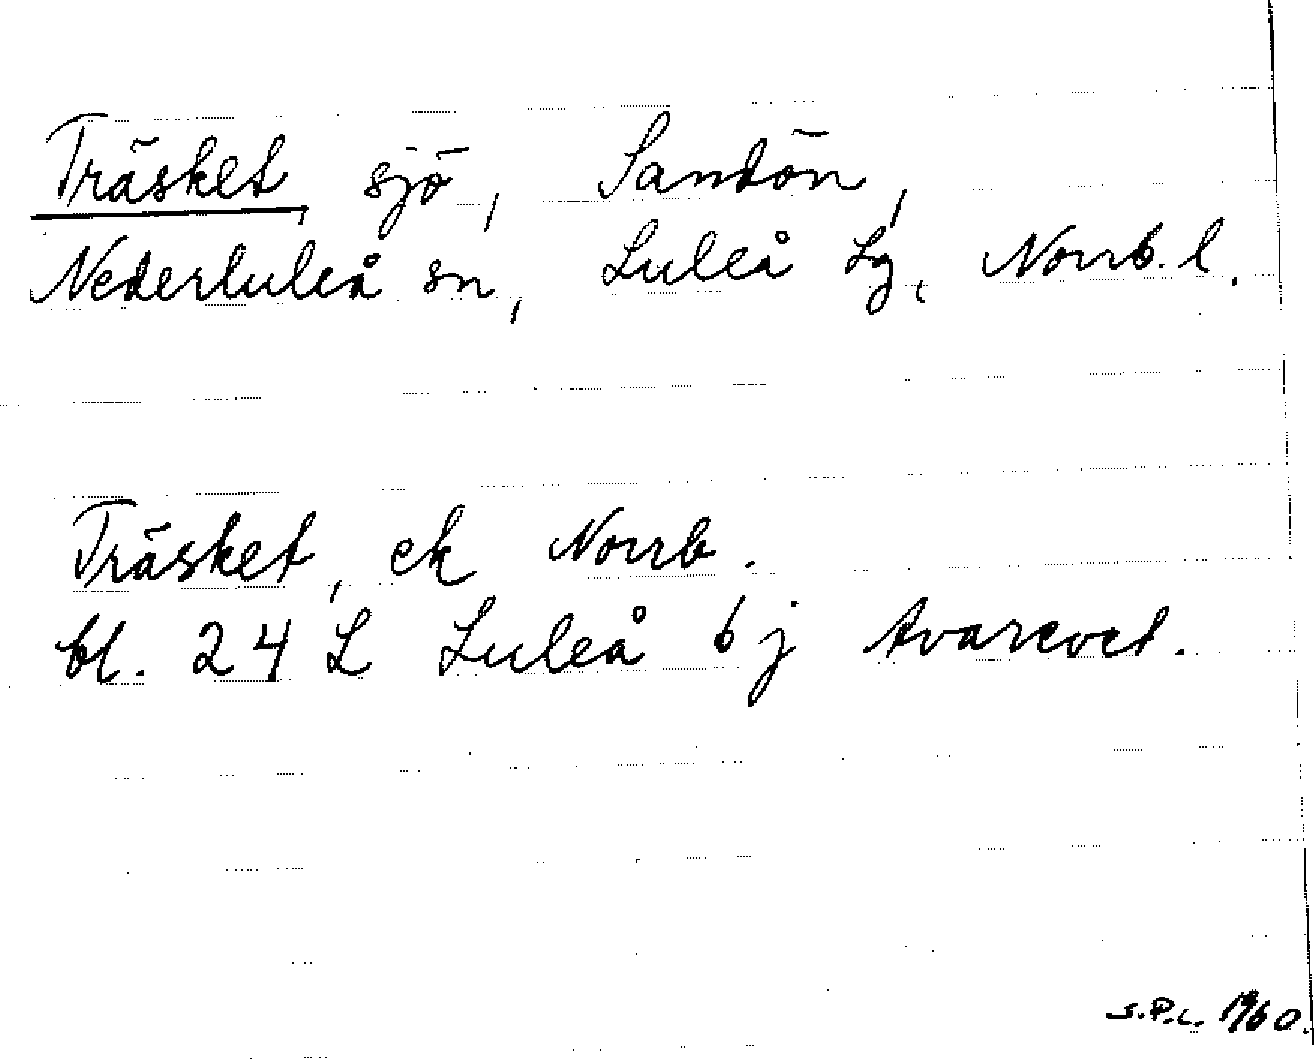 Träsket, sjö, Sandön,
Nederluleå sn, Luleå Lg, Norrb. l.
Träsket, ek Norrb.
bl. 24 L Luleå 6 j kvarevet.
S.P.L. 1960.